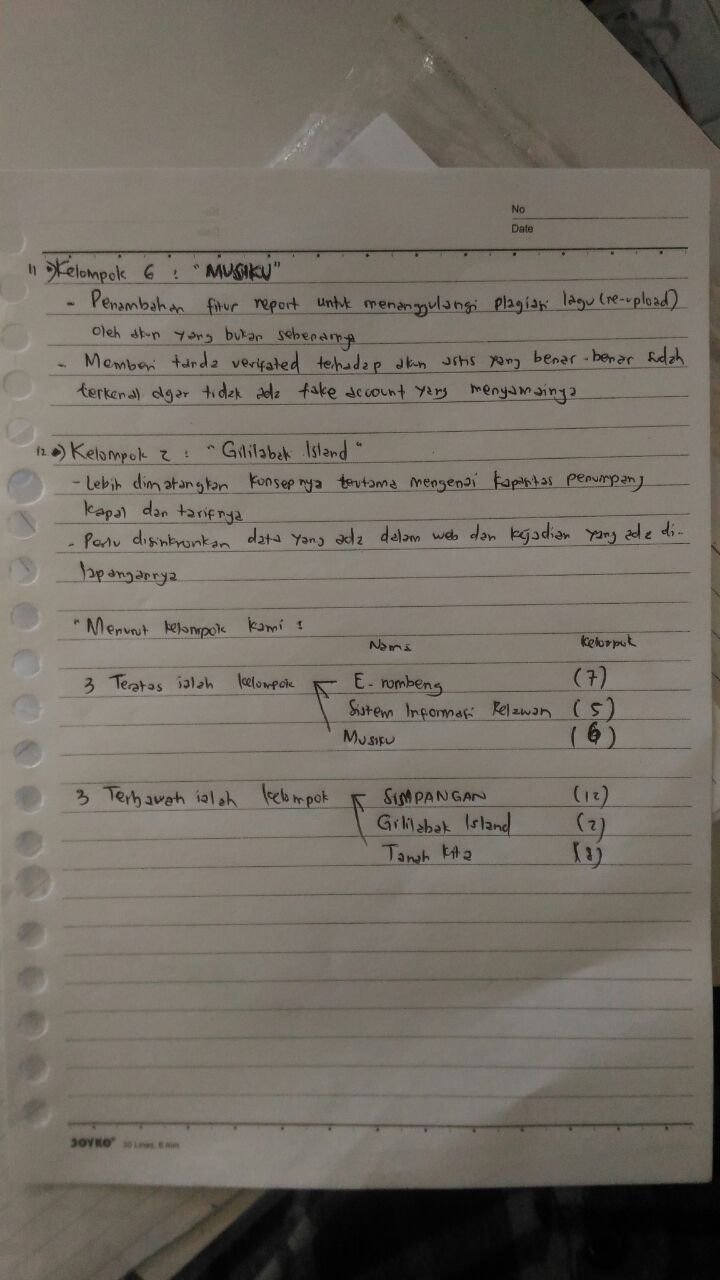 No
Date
11 •) Kelompok 6 : "MUSIKU"
- Penambahan fitur report untuk menanggulangi plagiasi lagu (re-upload)
oleh akun yang bukan sebenarnya
- Memberi tanda verifated terhadap akun artis yang benar-benar sudah
terkenal agar tidak ada fake account yang menyamainya
12 •) Kelompok 2 : "Gililabak Island"
- Lebih dimatangkan konsepnya terutama mengenai kapasitas penumpang
kapal dan tarifnya
- Perlu disinkronkan data yang ada dalam web dan kejadian yang ada di-
lapangannya
"Menurut kelompok kami :
Nama kelompok
3 Teratas ialah kelompok E-rombeng (7)
Sistem Informasi Relawan (5)
MUSIKU (6)
3 Terbawah ialah kelompok SIMPANGAN (12)
Gililabak Island (2)
Tanah kita (8)
JOYKO 30 Lines, 6 mm